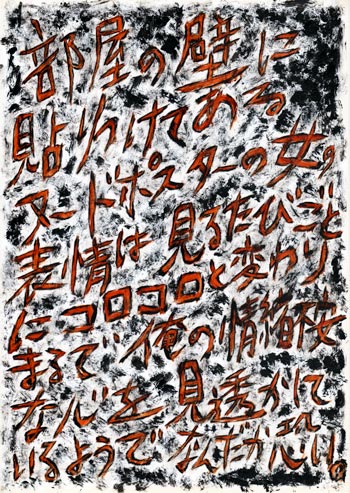 部屋の壁に
貼りつけてある
ヌードポスターの女の
表情は見るたびごと
にコロコロと変わり
まるで俺の情緒不安
な心を見透かして
いるようでなんだか恐い。